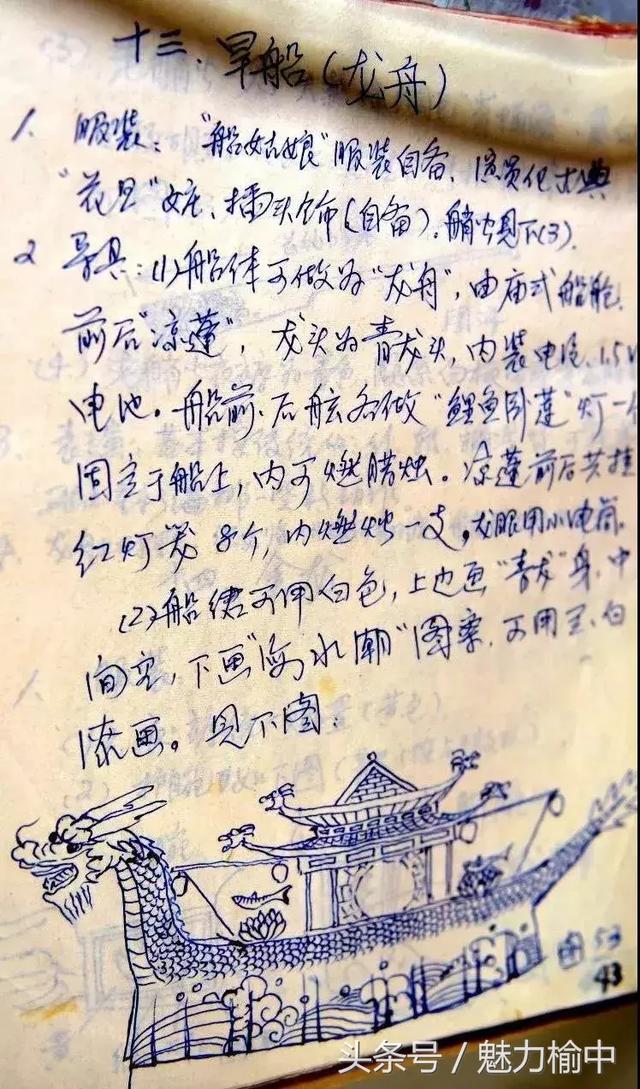 十三、旱船(龙舟)
1、服装："船姑娘"服装自备、演员化大典
"花旦"妆、插头饰(自备).艄公见下(3).
2 导具:(1)船体可做为"龙舟",由庙式船舱
前后"凉蓬",龙头为青龙头,内装电 1.5V
电池。船前、后舷各做"鲤鱼卧莲"灯一
固定于船上,内可燃腊烛。凉蓬前后共挂
红灯笼8个,内燃烛一支,龙眼用小电筒.
(2)船裙可用白色,上边画"青龙"身,中
间空,下画"海水潮"图案,可用 白
漆画。见下图:
图 53
43
头条号/魅力榆中